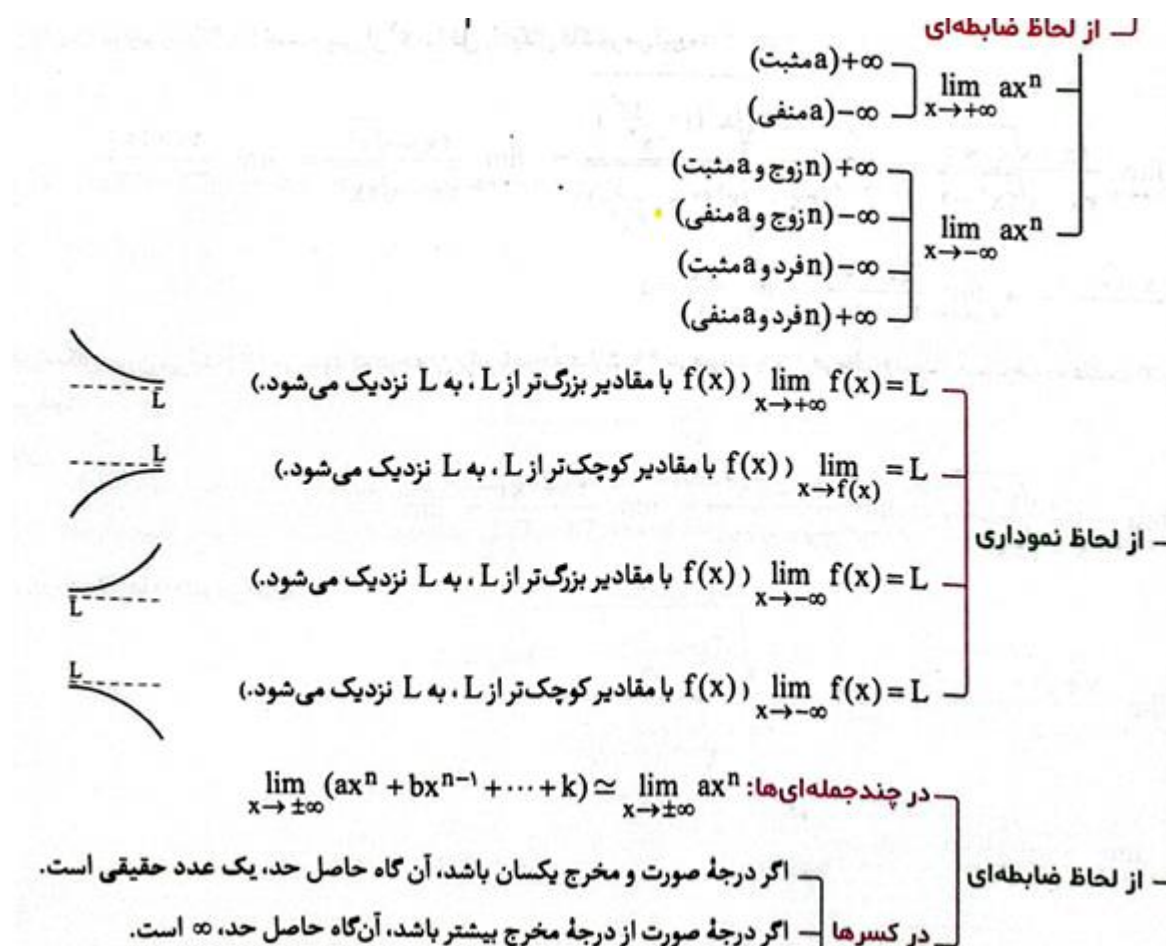 از لحاظ ضابطه‌ای
lim ax^n x→+∞
+∞ (a مثبت)
−∞ (a منفی)
lim ax^n x→−∞
+∞ (n زوج و a مثبت)
−∞ (n زوج و a منفی)
−∞ (n فرد و a مثبت)
+∞ (n فرد و a منفی)
از لحاظ نموداری
lim f(x) = L x→+∞ (f(x) با مقادیر بزرگ‌تر از L، به L نزدیک می‌شود.)
L
lim = L x→f(x) (f(x) با مقادیر کوچک‌تر از L، به L نزدیک می‌شود.)
L
lim f(x) = L x→−∞ (f(x) با مقادیر بزرگ‌تر از L، به L نزدیک می‌شود.)
L
lim f(x) = L x→−∞ (f(x) با مقادیر کوچک‌تر از L، به L نزدیک می‌شود.)
L
از لحاظ ضابطه‌ای
در چندجمله‌ای‌ها: lim (ax^n + bx^(n−۱) + ⋯ + k) ≃ lim ax^n x→±∞ x→±∞
در کسرها
اگر درجهٔ صورت و مخرج یکسان باشد، آن گاه حاصل حد، یک عدد حقیقی است.
اگر درجهٔ صورت از درجهٔ مخرج بیشتر باشد، آن‌گاه حاصل حد، ∞ است.